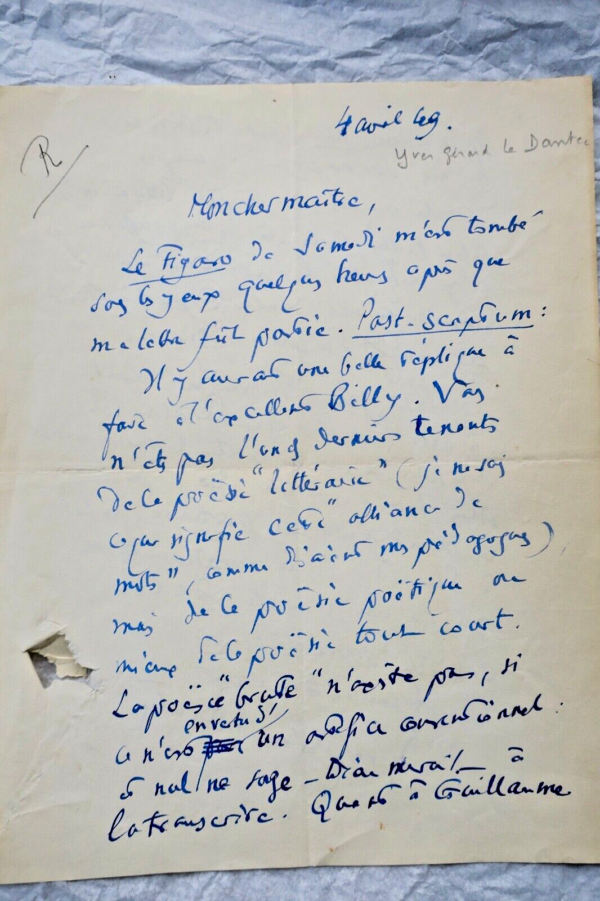 4 avril 49.
R
Yves Gérard le Dantec
Mon cher maître,
Le Figaro de Samedi m'est tombé
sous les yeux quelques heures après que
ma lettre fût partie. Post-scriptum :
Il y aurait une belle réplique à
faire à l'excellent Billy. Vous
n'êtes pas l'un des derniers tenants
de la poësie "littéraire" (je ne sais
ce que signifie cette "alliance de
mots", comme disaient mes pédagogues),
mais de la poësie poëtique ou
mieux de la poësie tout court.
La poësie "brute" n'existe pas, si
ce n'est en vertu d'un artifice conventionnel :
et nul ne songe – Dieu merci ! – à
la transcrire. Quant à Guillaume